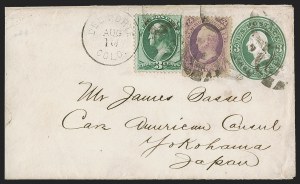 AUG
COLO.
3
Mr James Dassel
Care American Consul
Yokohama
Japan